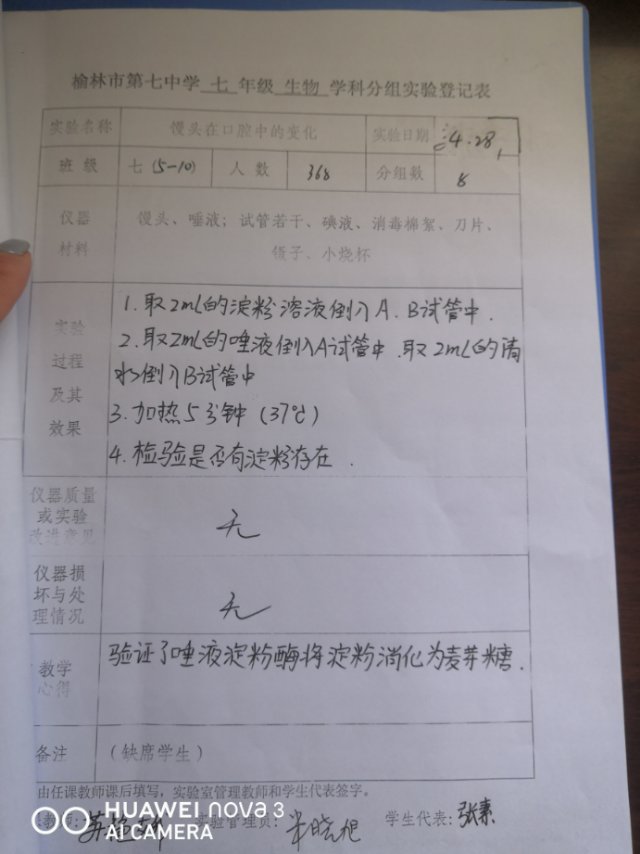 榆林市第七中学 七 年级 生物 学科分组实验登记表
实验名称 馒头在口腔中的变化 实验日期 4.28
班级 七(5-10) 人数 368 分组数 8
仪器 馒头、唾液；试管若干、碘液、消毒棉絮、刀片、
材料 镊子、小烧杯
1.取2mL的淀粉溶液倒入A.B试管中.
实验 2.取2mL的唾液倒入A试管中.取2mL的清
过程 水倒入B试管中
及其 3.加热5分钟(37℃)
效果 4.检验是否有淀粉存在.
仪器质量
或实验 无
改进意见
仪器损
坏与处 无
理情况
教学 验证了唾液淀粉酶将淀粉消化为麦芽糖.
心得
备注 (缺席学生)
由任课教师课后填写，实验室管理教师和学生代表签字。
教师: 实验管理员: 学生代表:
HUAWEI nova 3
AI CAMERA